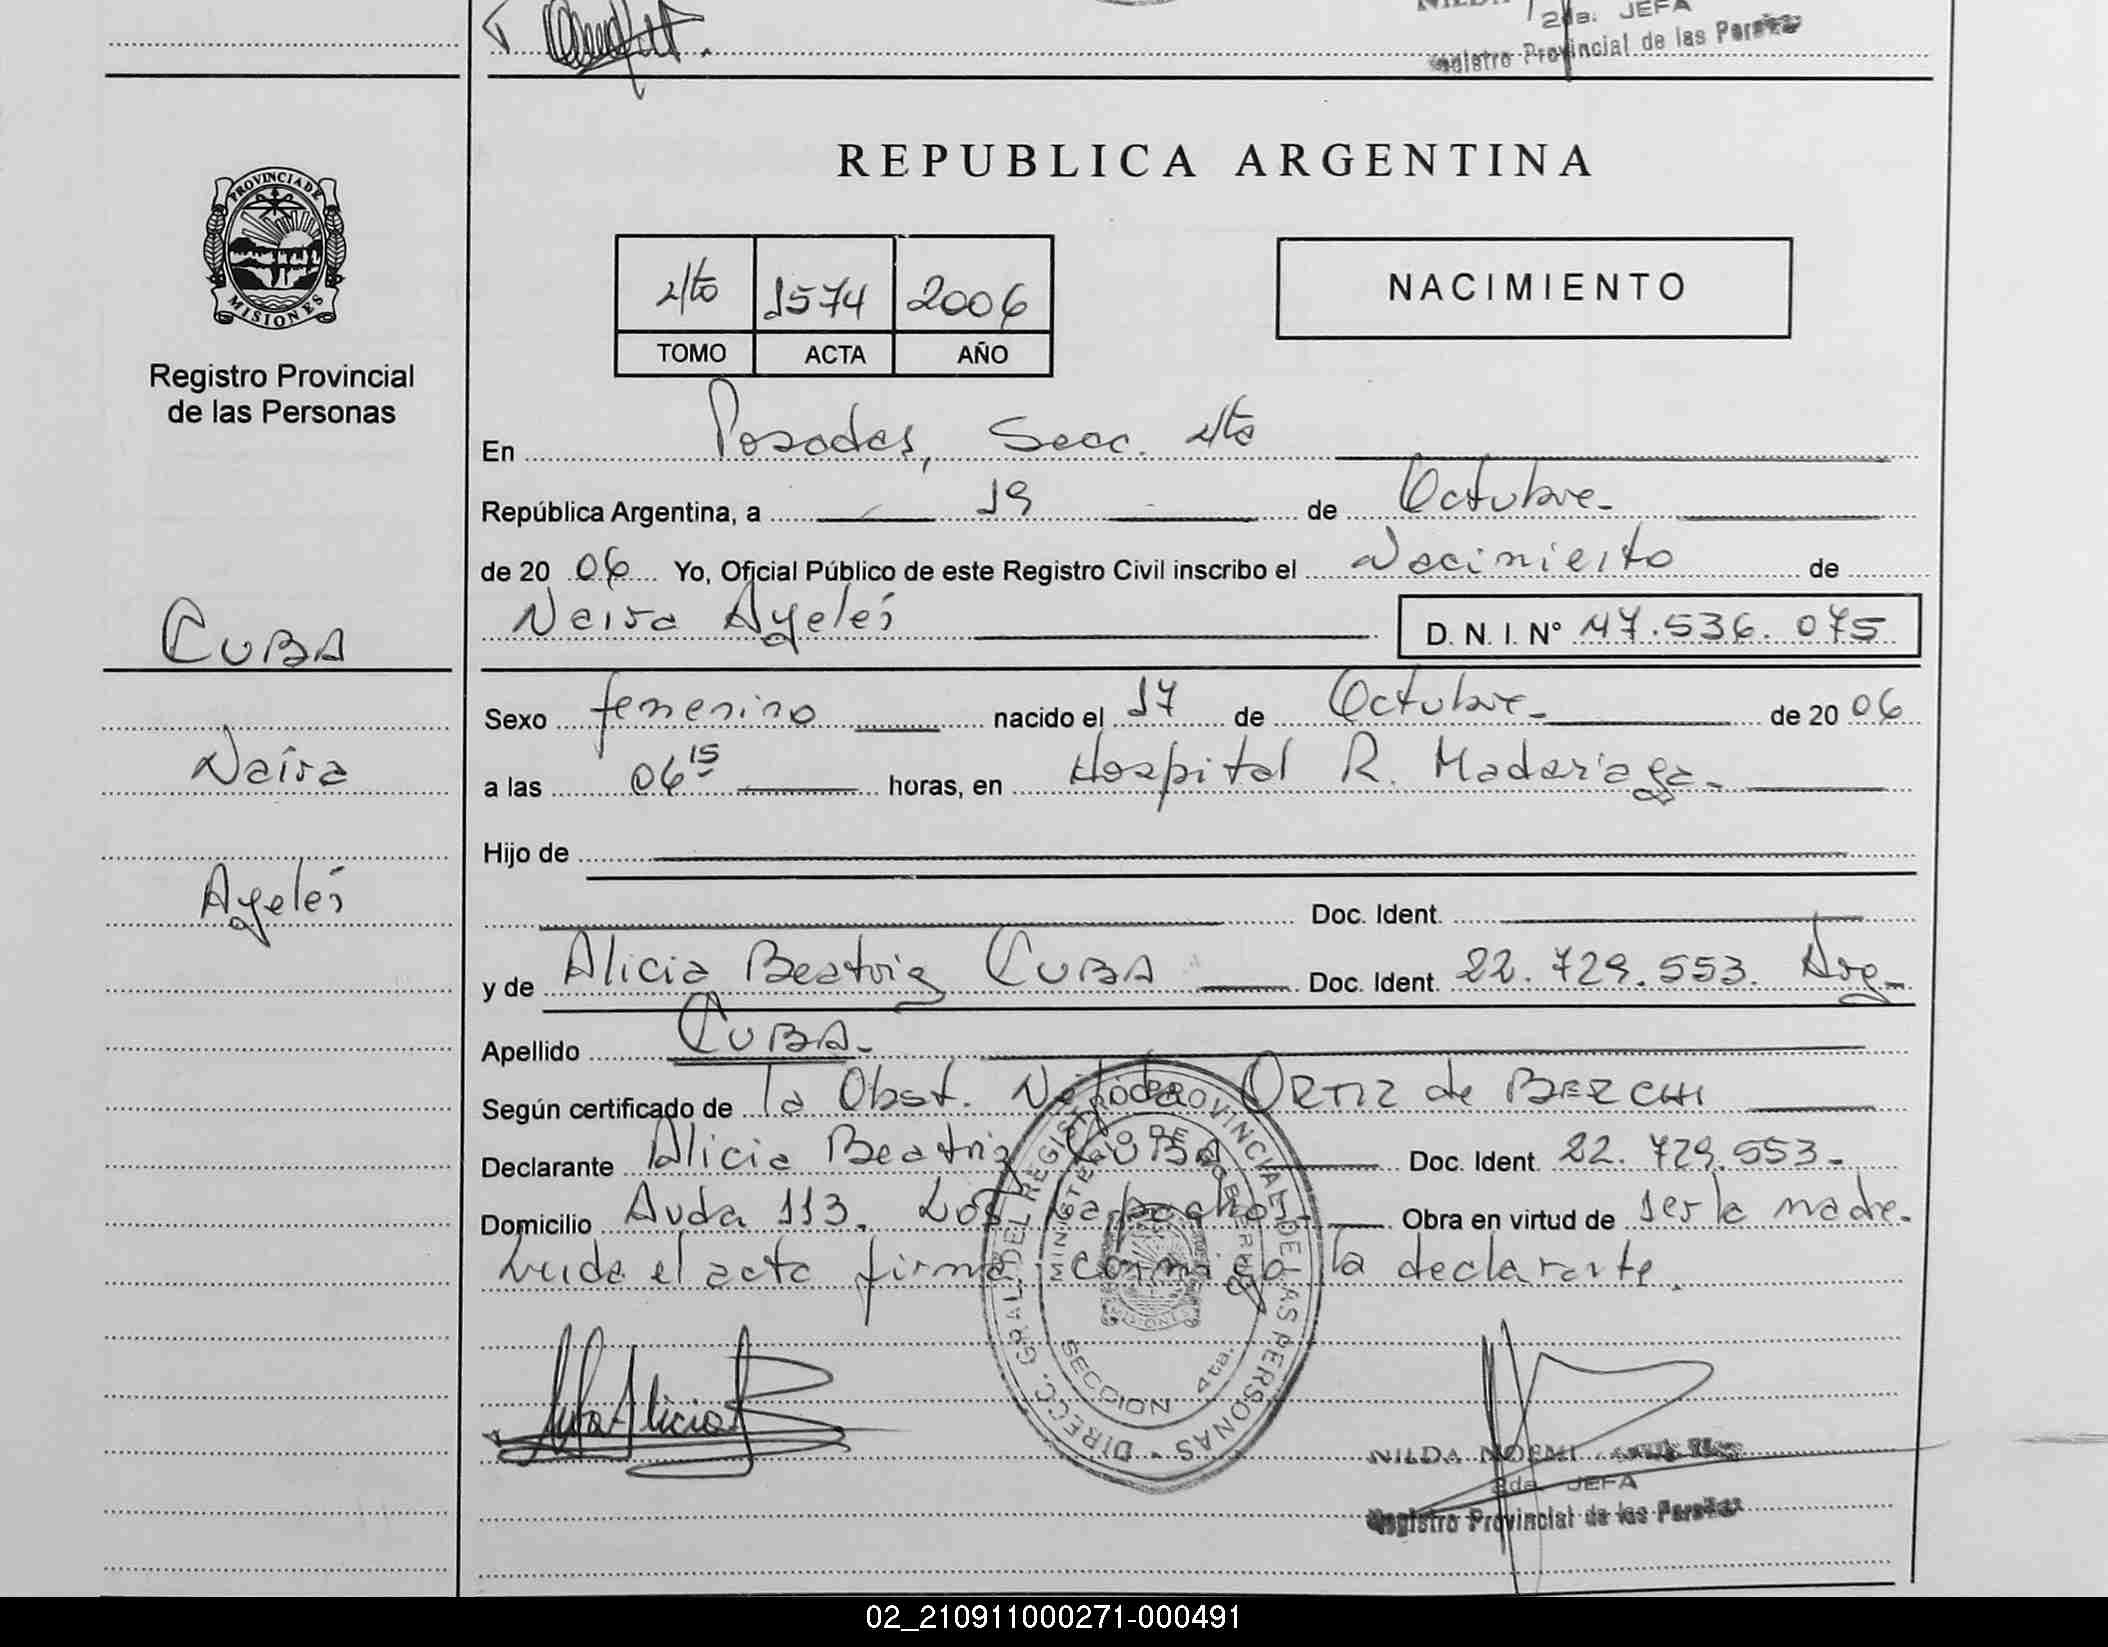 2da. JEFA
Registro Provincial de las Personas
PROVINCIA DE
MISIONES
Registro Provincial
de las Personas
REPUBLICA ARGENTINA
4to 1574 2006
TOMO ACTA AÑO
NACIMIENTO
En Posadas, Secc. 4to
República Argentina, a 19 de Octubre.
de 20 06 Yo, Oficial Público de este Registro Civil inscribo el Nacimiento de
Naira Ayelés D. N. I. Nº 47.536.075
CUBA
Naira
Ayelés
Sexo femenino nacido el 17 de Octubre de 20 06
a las 06 15 horas, en Hospital R. Madariaga
Hijo de
Doc. Ident.
y de Alicia Beatriz CUBA Doc. Ident. 22.729.553. Arg.
Apellido CUBA
Según certificado de la Obst. ORTIZ de BERCHI
Declarante Alicia Beatriz CUBA Doc. Ident. 22.729.553
Domicilio Avda 113. Los Lapachos Obra en virtud de ser la madre.
Leida el acta firma conmigo la declarante.
DIRECC. GRAL. DEL REGISTRO PROVINCIAL DE LAS PERSONAS
MINISTERIO DE GOBIERNO
SECCION 4ta.
Alicia B
NILDA NOEMI
2da. JEFA
Registro Provincial de las Personas
02_210911000271-000491